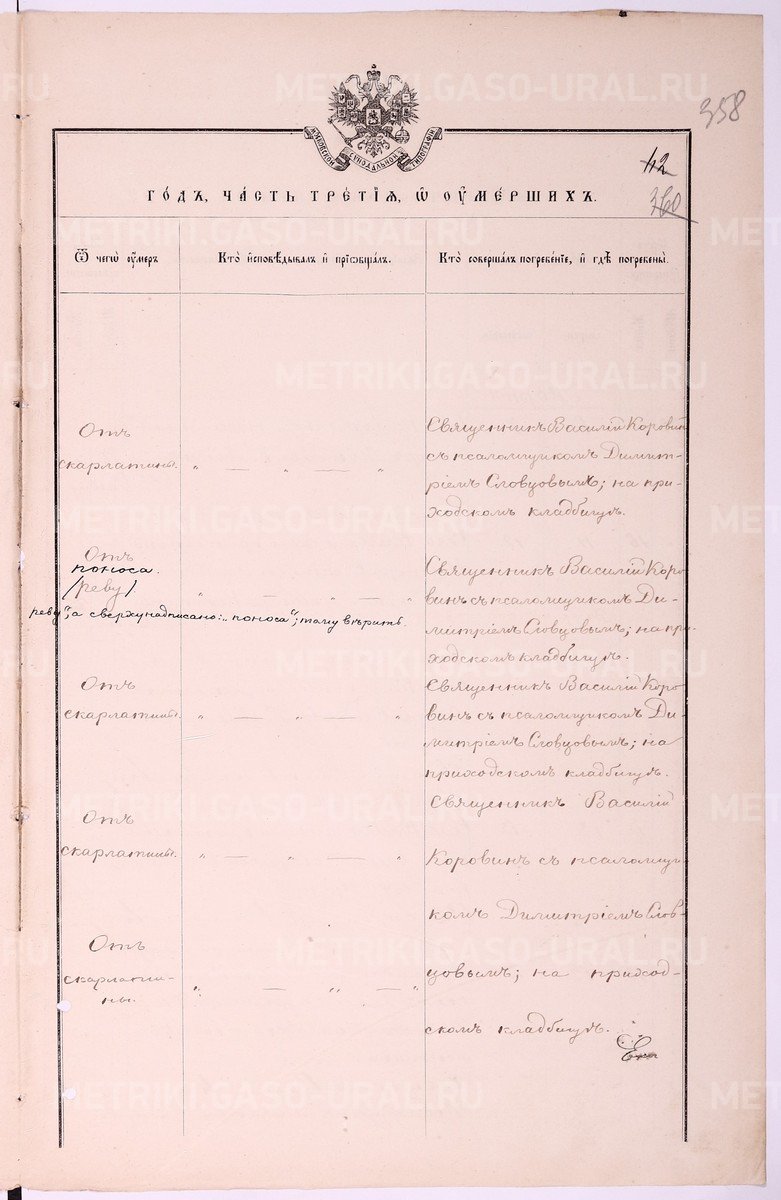 METRIKI.GASO-URAL.RU
358
МОСКОВСКОЙ СѴНОДАЛЬНОЙ ТИПОГРАФІИ
42
360
ГО́ДЪ, ЧА́СТЬ ТРЕ́ТІѦ, Ѡ҆ ОУ҆МЕ́РШИХЪ.
Ѿ чегѡ̀ оу҆́меръ
Кто̀ и҆сповѣ́дывалъ и҆ приѡбща́лъ.
Кто̀ соверша́лъ погребе́нїе, и҆ гдѣ̀ погребены̀.
Отъ
скарлатины.
" — " — "
Священникъ Василій Коровин
съ псаломщикомъ Димит-
ріемъ Словцовымъ; на при-
ходскомъ кладбищѣ.
Отъ
поноса.
/реву/
" — " — "
реву", а сверху надписано: "поноса"; тому вѣрить.
Священникъ Василій Коро-
винъ съ псаломщикомъ Ди-
митріемъ Словцовымъ; на при-
ходскомъ кладбищѣ.
Отъ
скарлатины.
" — " — "
Священникъ Василій Коро-
винъ съ псаломщикомъ Ди-
митріемъ Словцовымъ; на
приходскомъ кладбищѣ.
Отъ
скарлатины.
" — " — "
Священникъ Василій
Коровинъ съ псаломщи-
комъ Димитріемъ Слов-
цовымъ; на приход-
скомъ кладбищѣ.
Отъ
скарлати-
ны.
" — " — "